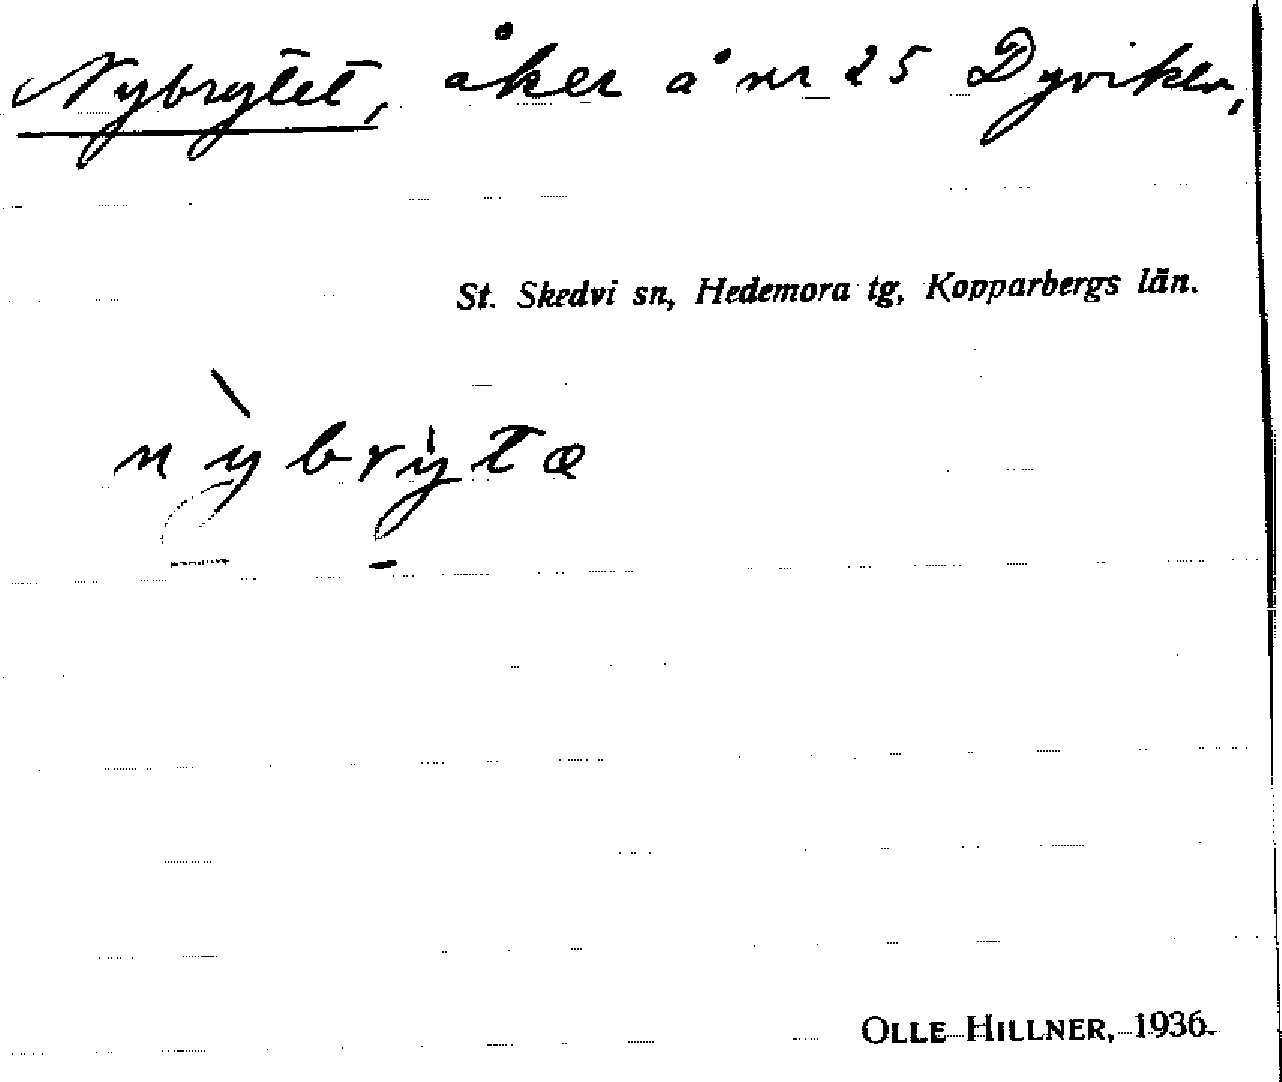 Nybrytet, åker å nr 25 Dyvikla,
St. Skedvi sn, Hedemora tg, Kopparbergs län.
nỳbrytæ
OLLE HILLNER, 1936.